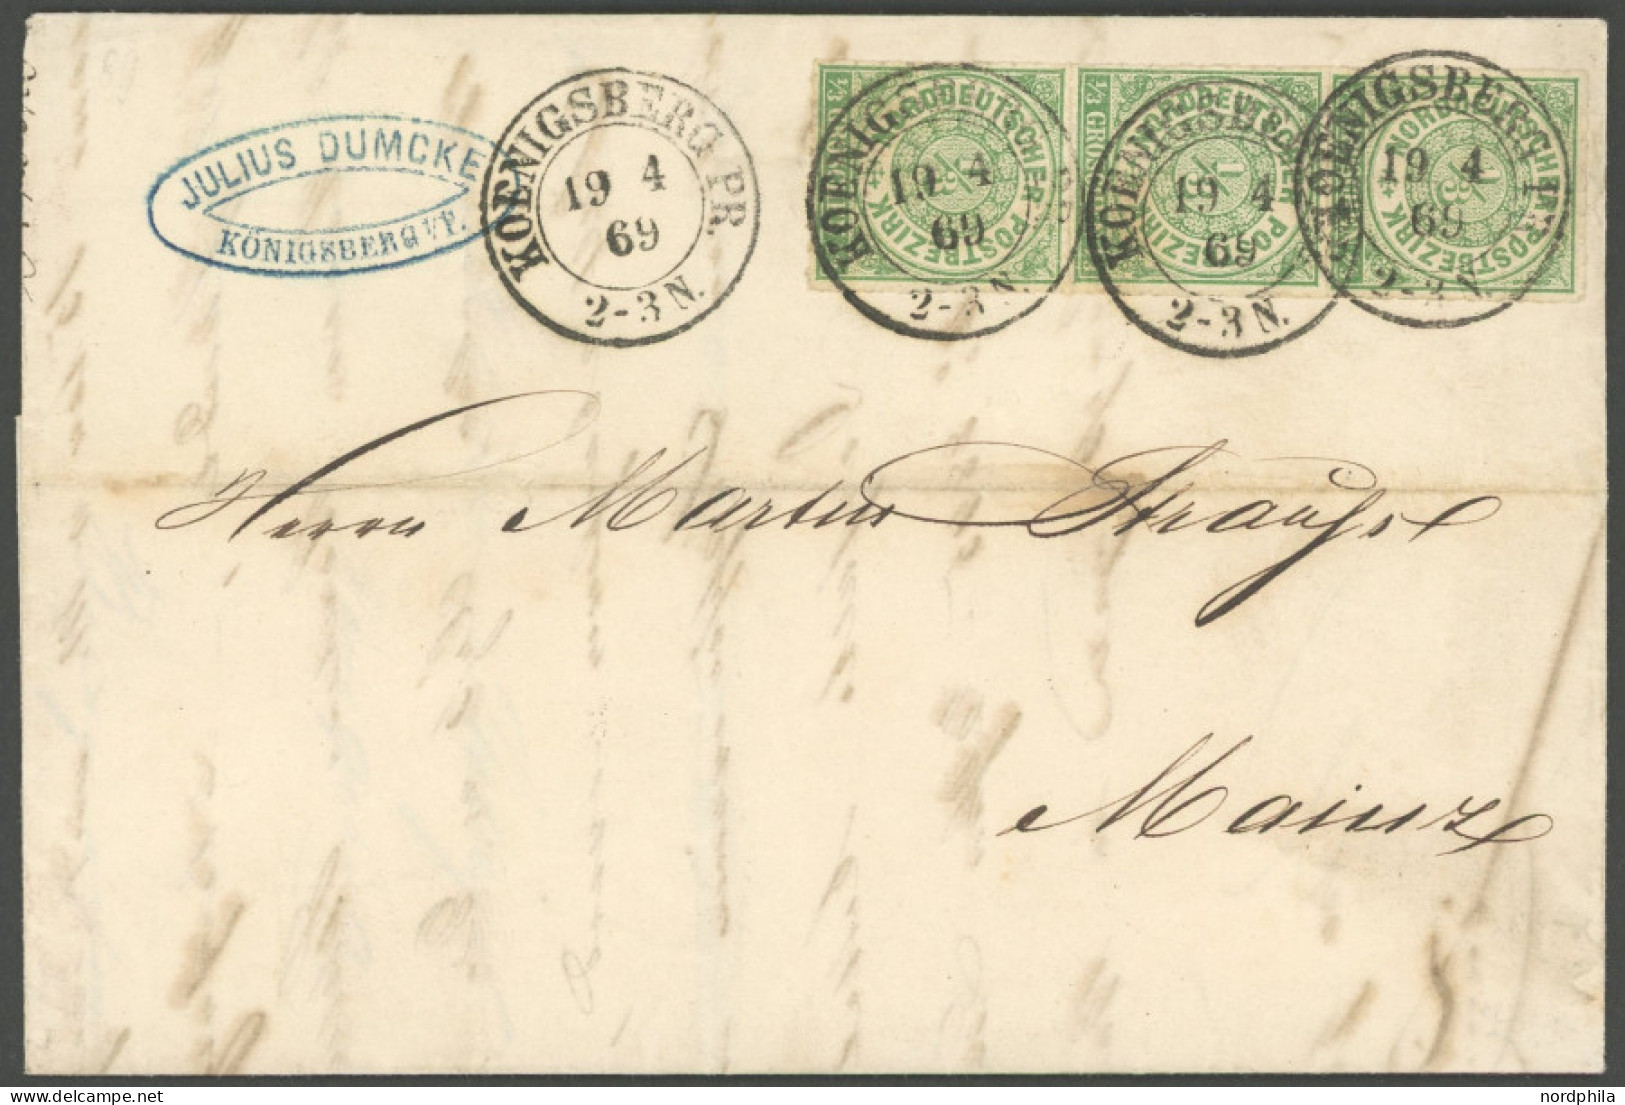 JULIUS DUMCKE
KÖNIGSBERG I/P.
KOENIGSBERG PR.
19 4
69
2-3 N.
1/3
NORDDEUTSCHER POSTBEZIRK
KOENIGSBERG PR.
19 4
69
2-3 N.
1/3
NORDDEUTSCHER POSTBEZIRK
KOENIGSBERG PR.
19 4
69
2-3 N.
1/3
NORDDEUTSCHER POSTBEZIRK
KOENIGSBERG PR.
19 4
69
2-3 N.
Herrn Martin Strauß
Mainz
nordphila